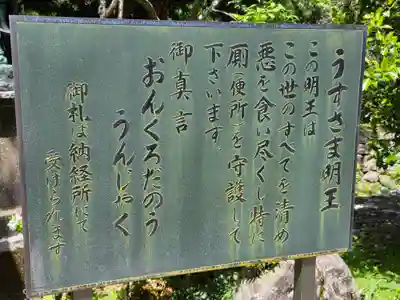 うすさま明王
この明王は
この世のすべてを清め
悪を食い尽くし特に
厠(便所)を守護して
下さいます。
御真言
おんくろだのう
うんじゃく
御札は納経所にて
受けられます